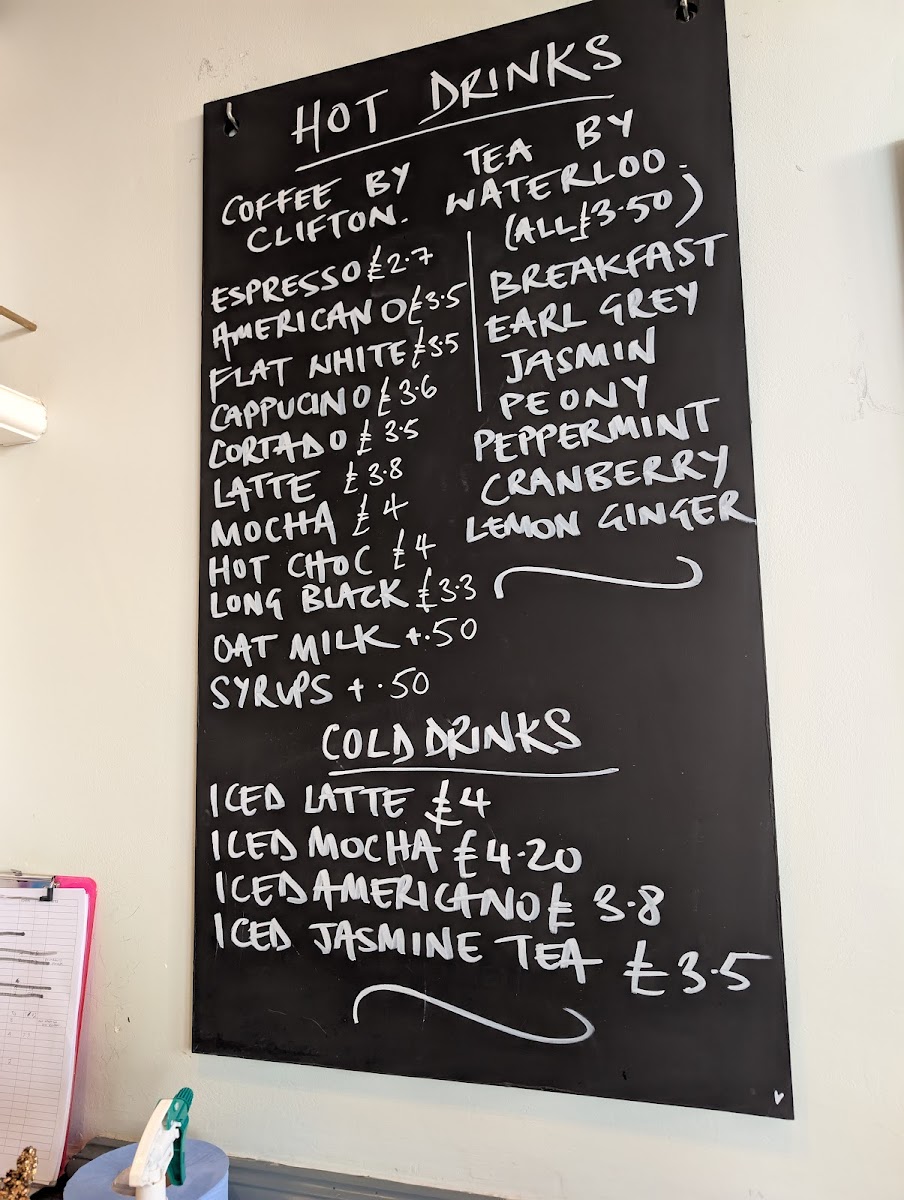 HOT DRINKS
COFFEE BY
CLIFTON.
ESPRESSO £2.7
AMERICANO £3.5
FLAT WHITE £3.5
CAPPUCINO £3.6
CORTADO £3.5
LATTE £3.8
MOCHA £4
HOT CHOC £4
LONG BLACK £3.3
OAT MILK +.50
SYRUPS +.50
TEA BY
WATERLOO.
(ALL £3.50)
BREAKFAST
EARL GREY
JASMIN
PEONY
PEPPERMINT
CRANBERRY
LEMON GINGER
COLD DRINKS
ICED LATTE £4
ICED MOCHA £4.20
ICED AMERICANO £3.8
ICED JASMINE TEA £3.5